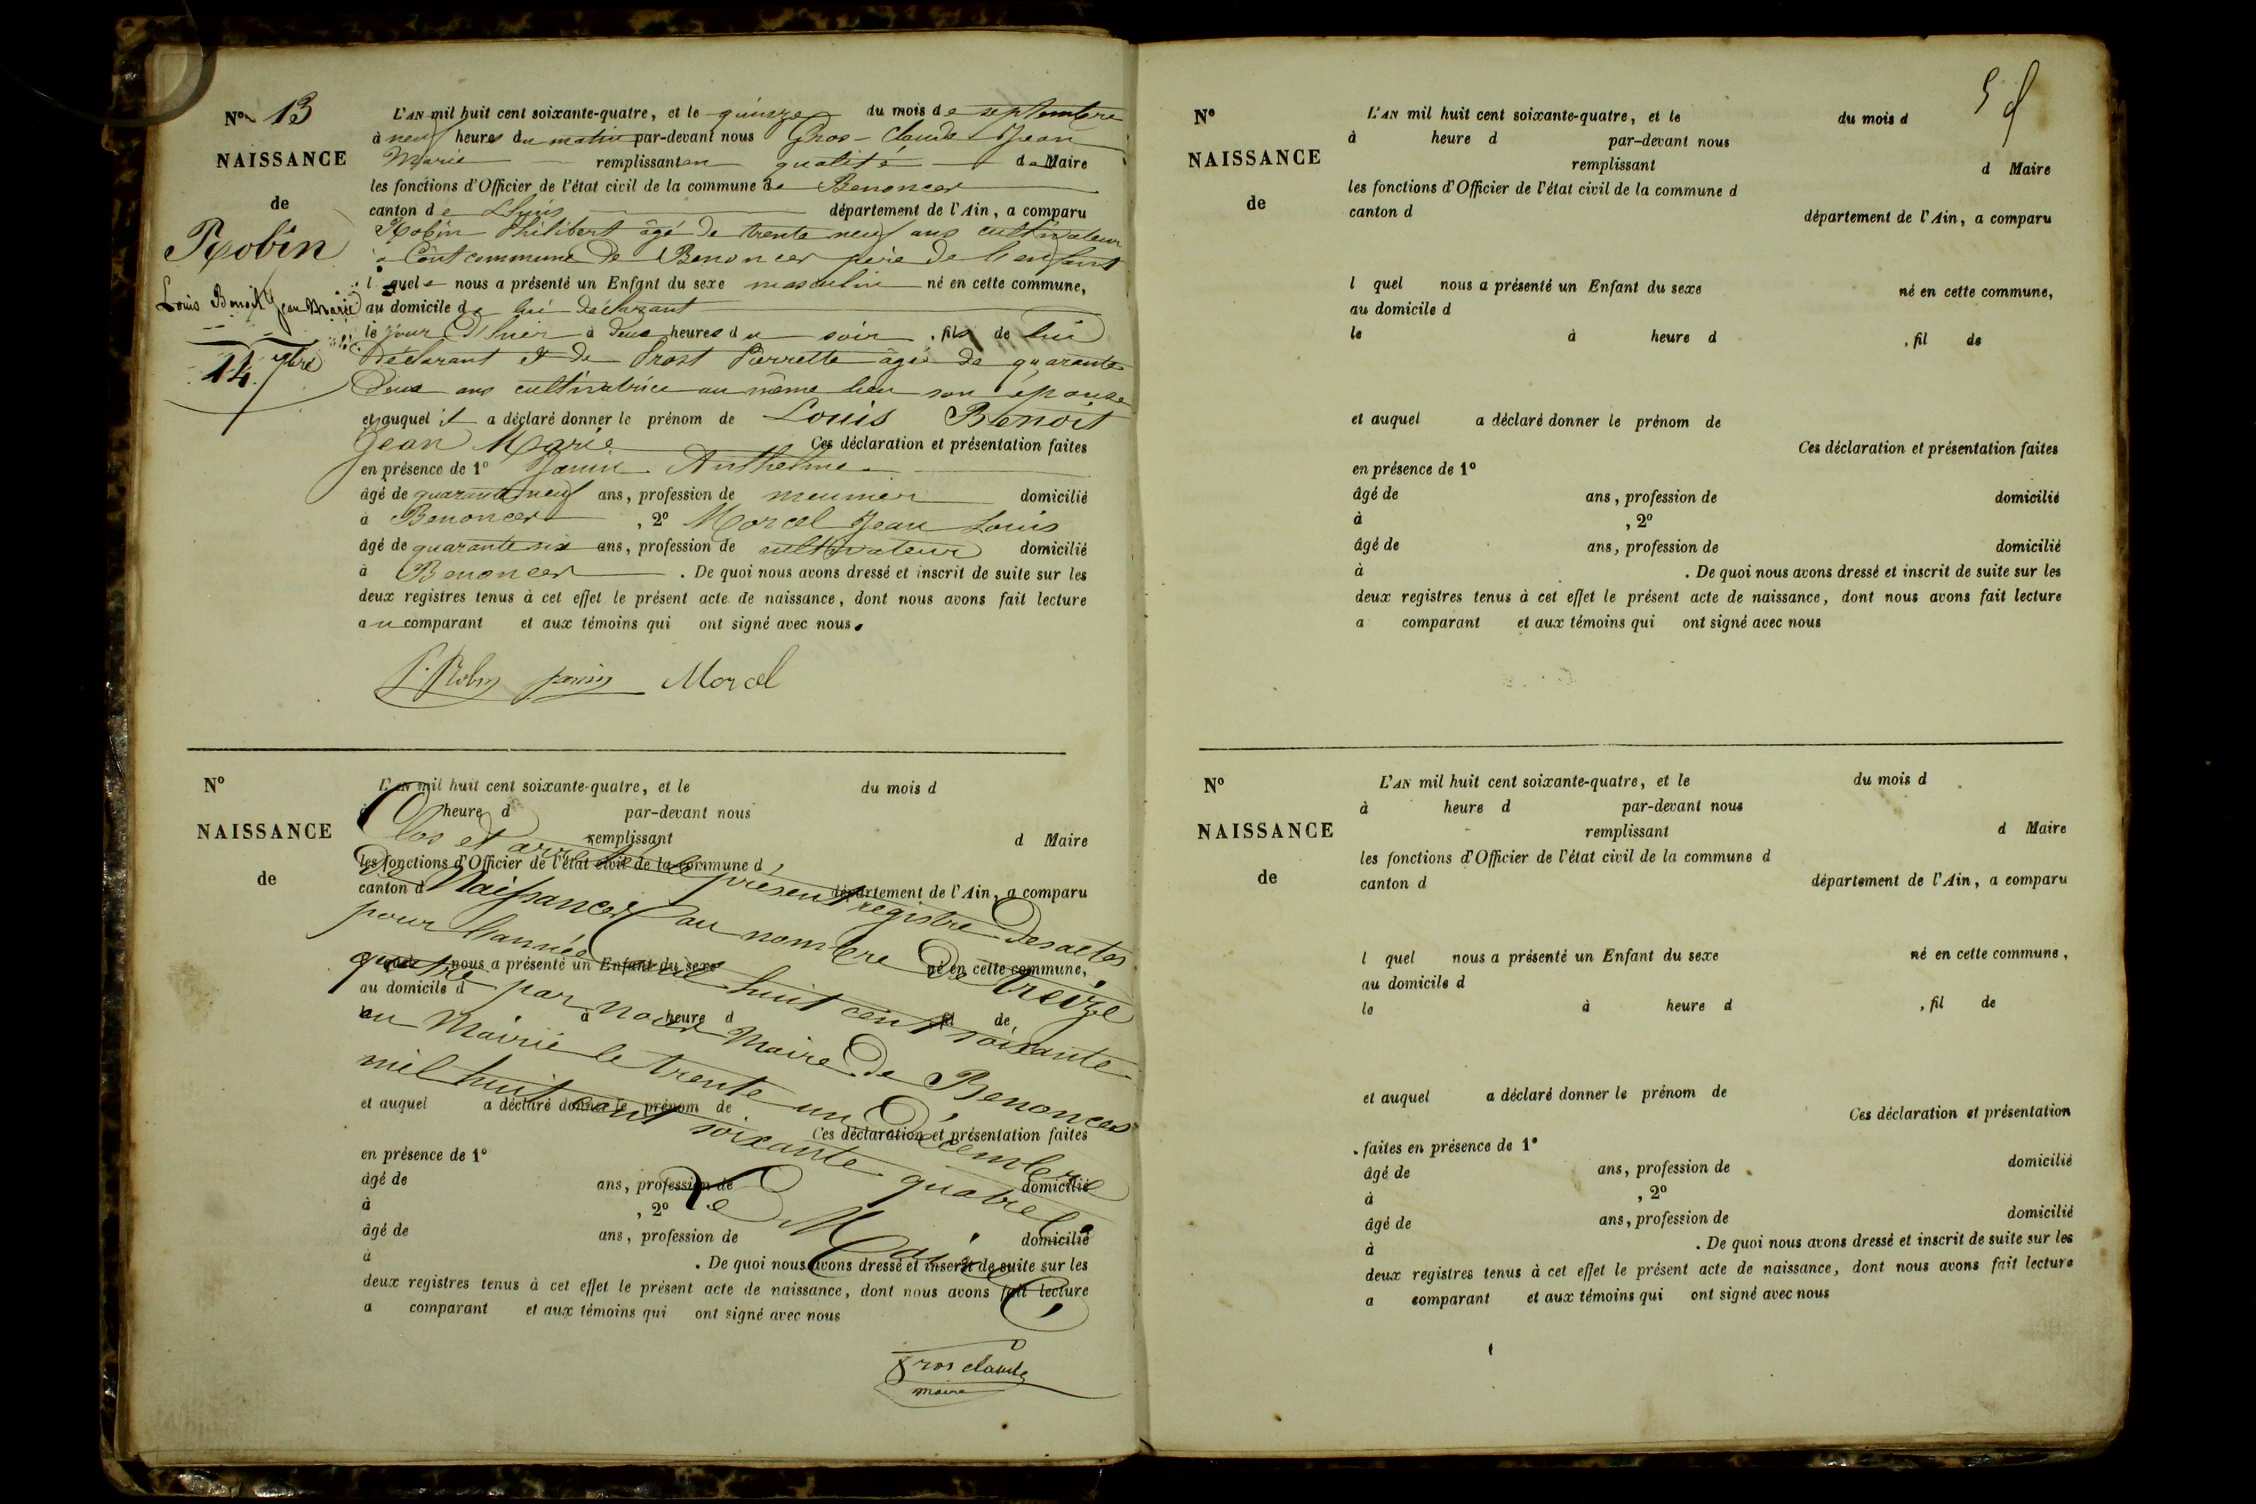 N° 13
NAISSANCE
de
Robin
Louis Benoit Jean Marie
14 7bre
L'AN mil huit cent soixante-quatre, et le quinze du mois de septembre
à neuf heures du matin par-devant nous Gros-Claude Jean
Marie remplissant en qualité de Maire
les fonctions d'Officier de l'état civil de la commune de Benonces
canton de Lhuis département de l'Ain, a comparu
Robin Philibert âgé de trente neuf ans cultivateur
à commune de Benonces père de l'enfant
lequel nous a présenté un Enfant du sexe masculin né en cette commune,
au domicile de lui déclarant
le jour d'hier à deux heures du soir, fils de lui
déclarant et de Prost Pierrette âgée de quarante
deux ans cultivatrice au même lieu son épouse
et auquel il a déclaré donner le prénom de Louis Benoit
Jean Marie Ces déclaration et présentation faites
en présence de 1° Janin Anthelme
âgé de quarante neuf ans, profession de meunier domicilié
à Benonces, 2° Morcel Jean Louis
âgé de quarante six ans, profession de cultivateur domicilié
à Benonces. De quoi nous avons dressé et inscrit de suite sur les
deux registres tenus à cet effet le présent acte de naissance, dont nous avons fait lecture
au comparant et aux témoins qui ont signé avec nous.
P. Robin Janin Morcel
N°
NAISSANCE
de
L'AN mil huit cent soixante-quatre, et le du mois d
à heure d par-devant nous
remplissant d Maire
les fonctions d'Officier de l'état civil de la commune d
canton d département de l'Ain, a comparu
l quel nous a présenté un Enfant du sexe né en cette commune,
au domicile d
le à heure d , fil de
et auquel a déclaré donner le prénom de
Ces déclaration et présentation faites
en présence de 1°
âgé de ans, profession de domicilié
à , 2°
âgé de ans, profession de domicilié
à . De quoi nous avons dressé et inscrit de suite sur les
deux registres tenus à cet effet le présent acte de naissance, dont nous avons fait lecture
a comparant et aux témoins qui ont signé avec nous
Clos et arrêté le présent registre des actes
de Naissances au nombre de treize
pour l'année mil huit cent soixante
quatre par nous Maire de Benonces
en Mairie le trente un Décembre
mil huit cent soixante quatre.
Le Maire
Gros claude
maire
N°
NAISSANCE
de
L'AN mil huit cent soixante-quatre, et le du mois d
à heure d par-devant nous
remplissant d Maire
les fonctions d'Officier de l'état civil de la commune d
canton d département de l'Ain, a comparu
l quel nous a présenté un Enfant du sexe né en cette commune,
au domicile d
le à heure d , fil de
et auquel a déclaré donner le prénom de
Ces déclaration et présentation faites
en présence de 1°
âgé de ans, profession de domicilié
à , 2°
âgé de ans, profession de domicilié
à . De quoi nous avons dressé et inscrit de suite sur les
deux registres tenus à cet effet le présent acte de naissance, dont nous avons fait lecture
a comparant et aux témoins qui ont signé avec nous
N°
NAISSANCE
de
L'AN mil huit cent soixante-quatre, et le du mois d
à heure d par-devant nous
remplissant d Maire
les fonctions d'Officier de l'état civil de la commune d
canton d département de l'Ain, a comparu
l quel nous a présenté un Enfant du sexe né en cette commune,
au domicile d
le à heure d , fil de
et auquel a déclaré donner le prénom de
Ces déclaration et présentation
faites en présence de 1°
âgé de ans, profession de domicilié
à , 2°
âgé de ans, profession de domicilié
à . De quoi nous avons dressé et inscrit de suite sur les
deux registres tenus à cet effet le présent acte de naissance, dont nous avons fait lecture
a comparant et aux témoins qui ont signé avec nous